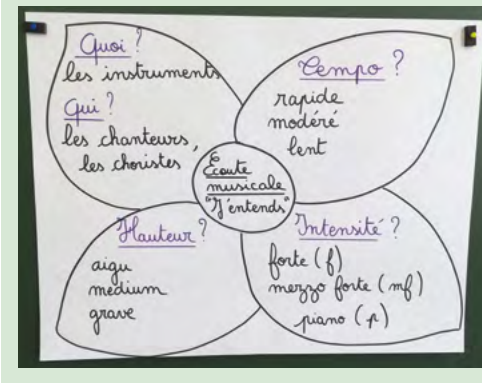 Quoi ?
les instruments
Qui ?
les chanteurs,
les choristes
Tempo ?
rapide
modéré
lent
Écoute
musicale
"J'entends"
Hauteur ?
aigu
medium
grave
Intensité ?
forte (f)
mezzo forte (mf)
piano (p)